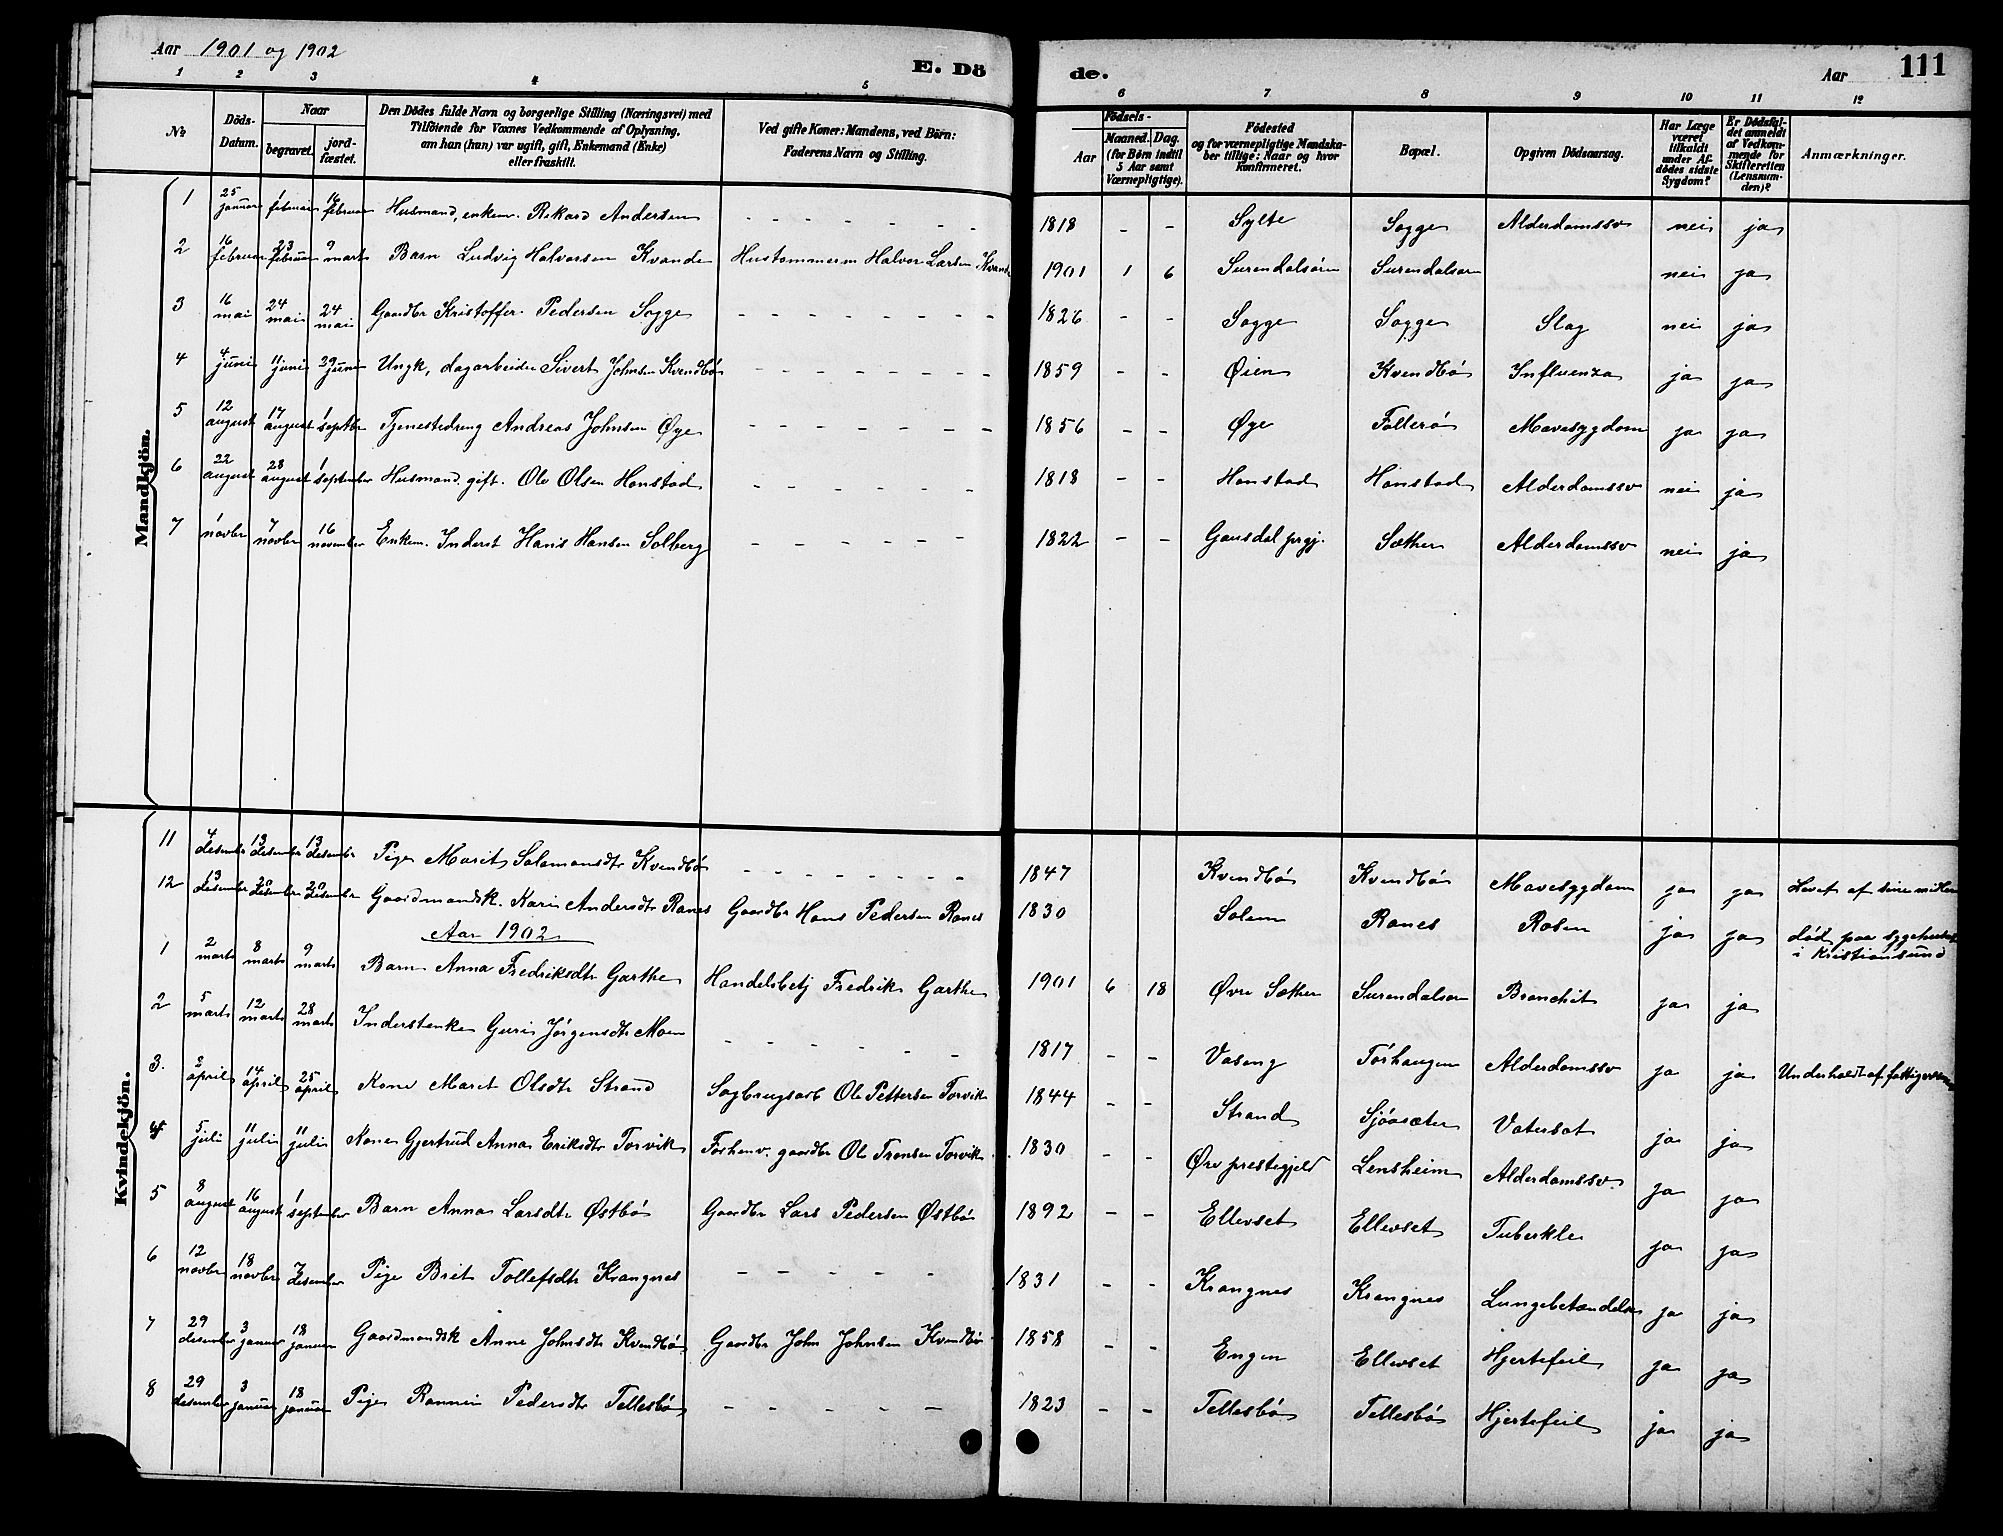 Aar 1901 og 1902
E. Döde.
Aar 111
1 2 3 4 5 6 7 8 9 10 11 12
No
Döds-Datum.
Naar
begravet.
jordfæstet.
Den Dödes fulde Navn og borgerlige Stilling (Næringsvei) med
Tilföiende for Voxnes Vedkommende af Oplysning,
om han (hun) var ugift, gift, Enkemand (Enke)
eller fraskilt.
Ved gifte Koner: Mandens, ved Börn:
Faderens Navn og Stilling.
Födsels-
Aar
Maaned. Dag.
(for Börn indtil
5 Aar samt
Værnepligtige).
Födested
og for værnepligtige Mandska-
ber tillige: Naar og hvor
konfirmeret.
Bopæl.
Opgiven Dödsaarsag.
Har Læge
været
tilkaldt
under Af-
dödes sidste
Sygdom?
Er Dödsfal-
det anmeldt
af Vedkom-
mende for
Skifteretten
(Lensman-
den)?
Anmærkninger.
Mandkjön.
1 25 januar 1 februar 16 februar Husmand, enkem. Rikard Andersen - - - - - - 1818 - - Sylte Sogge Alderdomssv nei ja
2 16 februar 23 februar 9 marts Barn Ludvig Halvorsen Kvande Hustommerm Halvor Larsen Kvande 1901 1 6 Surendalsøren Surendalsøren nei ja
3 16 mai 24 mai 24 mai Gaardbr Kristoffer Pedersen Sogge - - - - - - - - 1826 - - Sogge Sogge Slag nei ja
4 4 juni 11 juni 29 juni Ungk, dagarbeider Sivert Johnsen Kvendbø - - - - - - - 1859 - - Øien Kvendbø Influenza ja ja
5 12 august 17 august 1 septbr Tjenestedreng Andreas Johnsen Øye - - - - - - - 1856 - - Øye Follerø Mavesygdom ja ja
6 22 august 28 august 1 september Husmand, gift. Ole Olsen Honstad - - - - - - 1818 - - Honstad Honstad Alderdomssv nei ja
7 1 novbr 7 novbr 16 november Enkem. Inderst Hans Hansen Solberg - - - - - - 1822 - - Gausdal prgj. Sæther Alderdomssv nei ja
Kvindekjön.
11 4 desember 13 desember 13 desember Pige Marit Salamonsdtr Kvendbø - - - - - - 1847 Kvendbø Kvendbø Mavesygdom ja ja Levet af sine midler
12 13 desember 20 desember 20 desember Gaardmandsk. Kari Andersdtr Ranes Gaardbr Hans Pedersen Ranes 1830 Solem Ranes Rosen ja ja død paa sygehuset
i Kristiansund
Aar 1902
1 2 marts 8 marts 9 marts Barn Anna Fredriksdtr Garthe Handelsbetj Fredrik Garthe 1901 6 18 Øvre Sæther Surendalsøren Bronchit ja ja
2 5 marts 12 marts 28 marts Inderstenke Guri Jørgensdtr Moen - - - - - 1817 - - Vaseng Tørhaugen Alderdomssv ja ja Underholdt af fattigvæsen
3. 2 april 14 april 25 april Kone Marit Olsdtr Strand Sagbrugsarb Ole Pettersen Torvik 1844 - - Strand Sjøasæter Vatersot ja ja
4 5 juli 11 juli 11 juli Kone Gjertrud Anna Eriksdtr Torvik Forhenv. gaardbr Ole Tronsen Torvik 1830 - - Øre prestegjeld Lensheim Alderdomssv. ja ja
5 8 august 16 august 1 september Barn Anna Larsdtr Østbø Gaardbr Lars Pedersen Østbø 1892 - - Ellevset Ellevset Tuberkle ja ja
6 12 novbr 18 novbr 7 desember Pige Brit Tollefsdtr Krangnes - - - - - 1831 - - Krangnes Krangnes Lungebetændelse ja ja
7 29 desember 3 januar 18 januar Gaardmandsk Anne Johnsdtr Kvendbø Gaardbr John Johnsen Kvendbø 1858 - - Engen Ellevset Hjertefeil ja ja
8 29 desember 3 januar 18 januar Pige Ronnei Pedersdtr Tellesbø - - - - - 1823 - - Tellesbø Tellesbø Hjertefeil ja ja